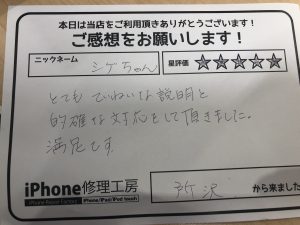 本日は当店をご利用頂きありがとうございます!
ご感想をお願いします!
ニックネーム シゲちゃん 星評価 ☆☆☆☆☆
とてもていねいな説明と
的確な対応をして頂きました。
満足です。
iPhone修理工房
iPhone Repair Factory iPhone/iPad/iPod touch
所沢 から来ました